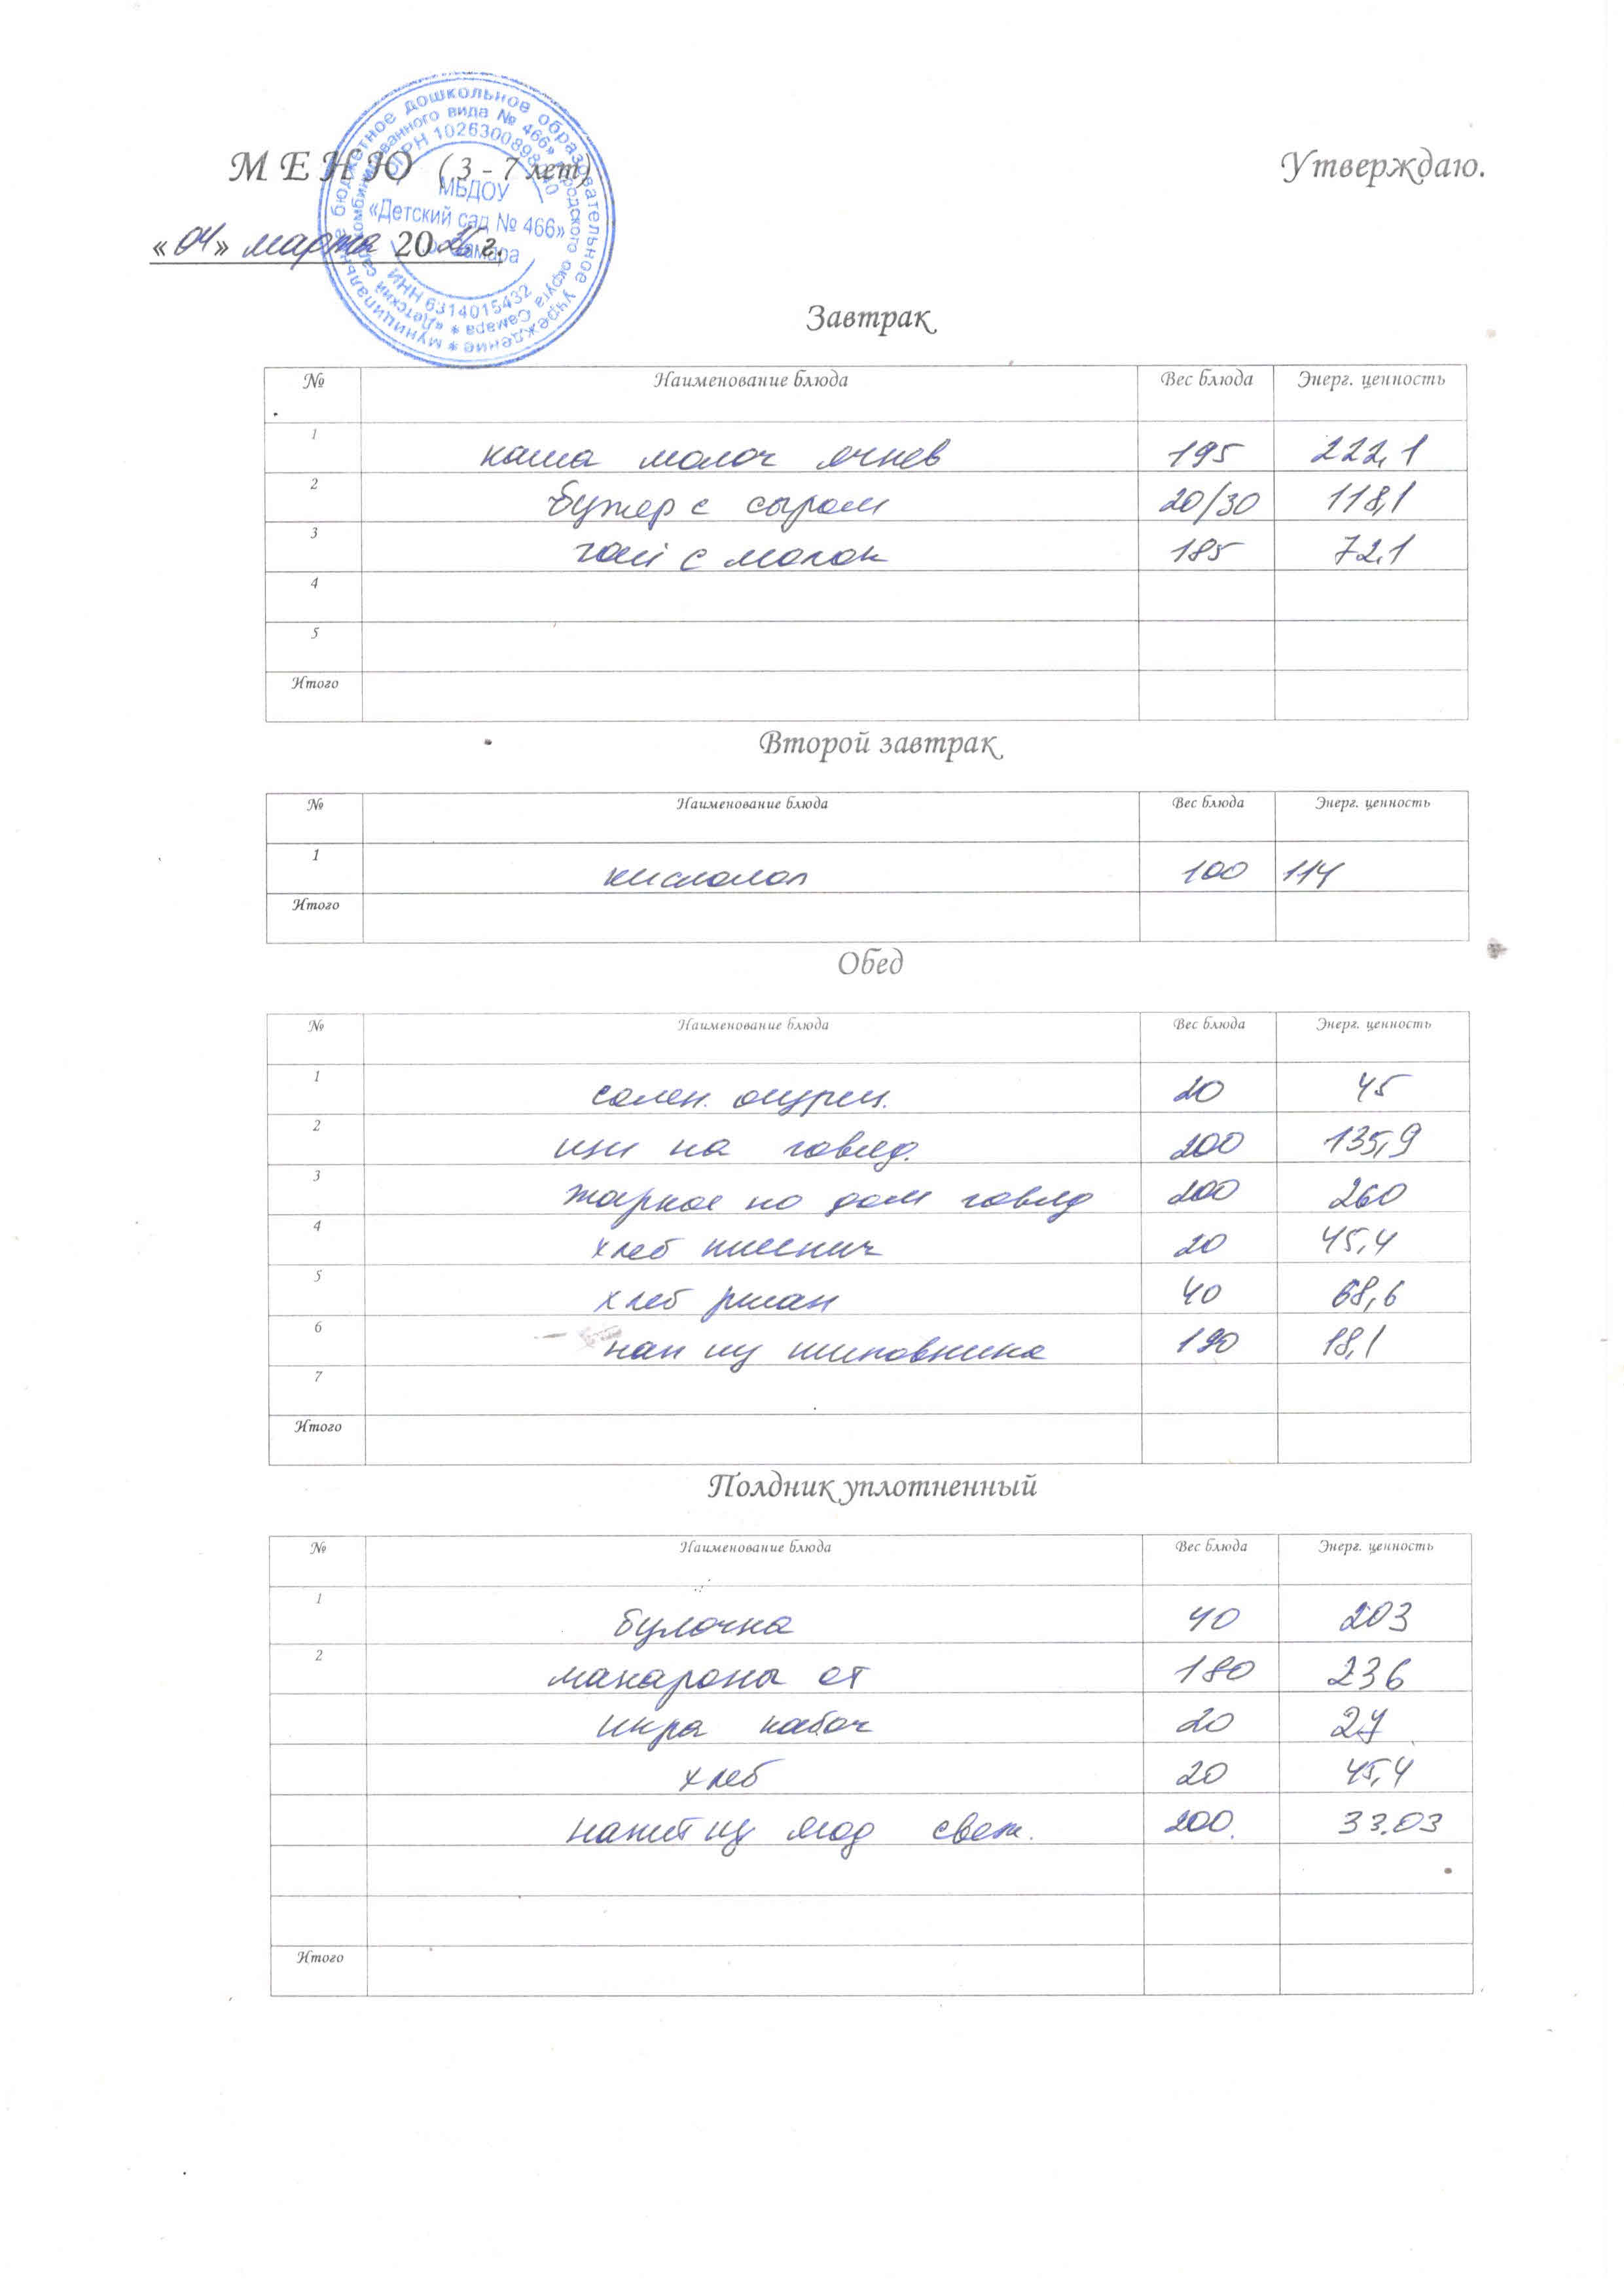 М Е Н Ю (3 - 7 лет)
Утверждаю.
«04» марта 2026 г.
муниципальное бюджетное дошкольное образовательное учреждение
«Детский сад комбинированного вида № 466» городского округа Самара
ОГРН
ИНН 6314015432
МБДОУ
«Детский сад № 466»
г.о. Самара
Завтрак
№ Наименование блюда Вес блюда Энерг. ценность
1 каша молоч ячнев 195 222,1
2 бутер с сыром 20/30 118,1
3 чай с молок 185 72,1
4
5
Итого
Второй завтрак
№ Наименование блюда Вес блюда Энерг. ценность
1 кисломол 100 114
Итого
Обед
№ Наименование блюда Вес блюда Энерг. ценность
1 солен. огурец. 20 45
2 щи на говяд. 200 135,9
3 жаркое по дом говяд 200 260
4 хлеб пшенич 20 45,4
5 хлеб ржан 40 68,6
6 нап из шиповника 190 18,1
7
Итого
Полдник уплотненный
№ Наименование блюда Вес блюда Энерг. ценность
1 булочка 40 203
2 макароны от 180 236
икра кабач 20 24
хлеб 20 45,4
напит из ягод свеж. 200. 33.03
Итого